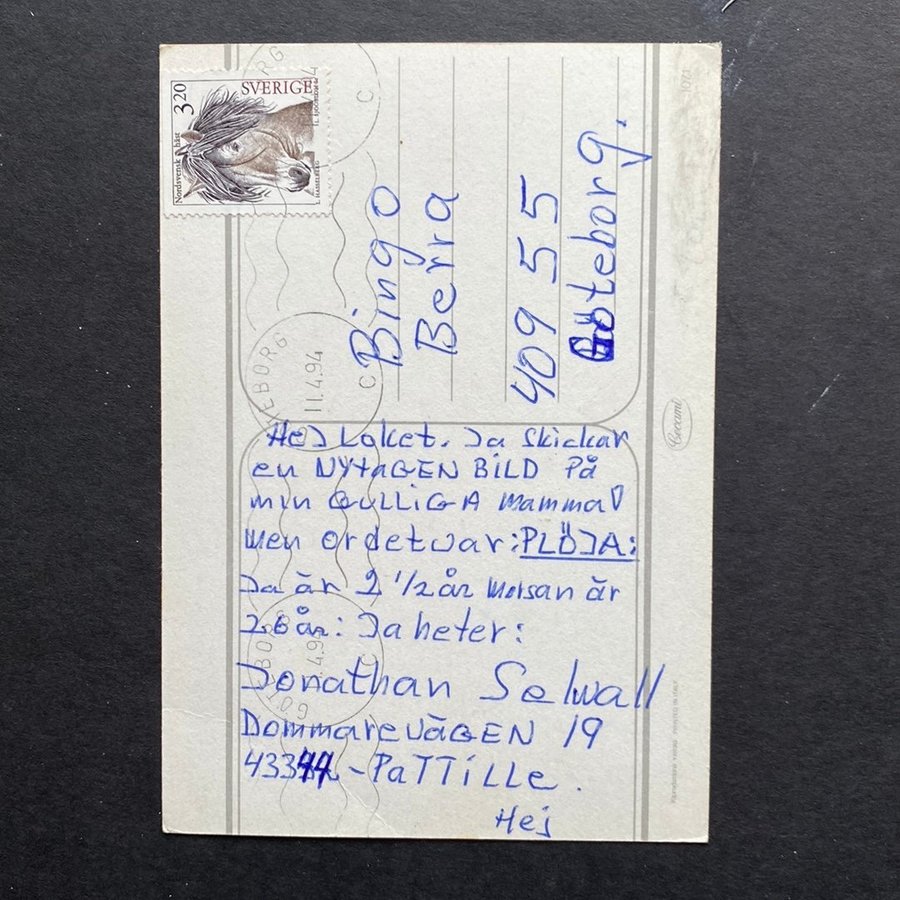 SVERIGE
3.20
Nordsvensk häst
L. HASSELBERG
GÖTEBORG
11.4.94
C
Bingo
Berra
409 55
Göteborg.
Cecami
1073
PRINTED IN ITALY
Hej Loket. Ja Skickar
en NYtAGEN BILD På
min GULLiGA mamma
men ordet var: PLÖJA:
Ja är 2 1/2 år morsan är
26 år: Ja heter:
Jonathan Selwall
DommarevÄGEN 19
43344 - PaTTiLLe.
Hej